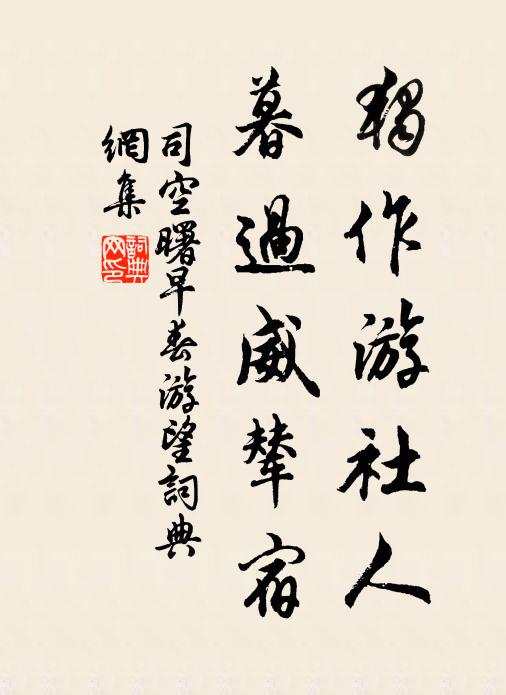 獨作游社人
暮過威輦宿
司空曙早春游望詞典
網集
詞典
网印